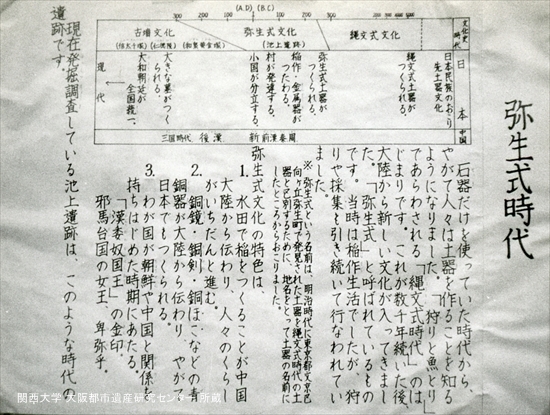 弥生式時代
石器だけを使っていた時代から、
やがて人々は土器を作ることを知る
ようになりました。狩りと魚とり
であらわされる「縄文式時代」のは
じまりです。これが数千年続いた後、
大陸から新しい文化が入ってきまし
た。「弥生式」と呼ばれているもの
です。当時は稲作生活でしたが、狩
りや採集も引き続いて行なわれてい
ました。
※弥生式という名前は、明治時代に東京都文京区
向ヶ丘弥生町で発見された土器を縄文式時代の土
器と区別するために、地名をとって土器の名前に
したところからおこりました。
弥生式文化の特色は、
1. 水田で稲をつくることが中国
大陸から伝わり、人々のくらし
がいちだんと進む。
2. 銅鏡・銅剣・銅ほこなどの青
銅器が大陸から伝わり、やがて
日本でもつくられる。
3. わが国が朝鮮や中国と関係を
持ちはじめた時期にあたる。
「漢委奴国王」の金印。
邪馬台国の女王、卑弥乎。
現在発掘調査している池上遺跡は、このような時代の
遺跡です。
(A.D) (B.C)
300 200 100 0 100 200 300
文化史
時代
縄文式文化
弥生式文化
(池上遺跡)
古墳文化
日本
日本民族のおこり
先土器文化
縄文式土器が
つくられる。
弥生式土器が
つくられる。
稲作・金属器が
つたわる。
村が発達する。
小国が分立する。
大きな墓がつく
られる。
大和朝廷が
全国統一。
現代
中国
周
秦
前漢
新
後漢
三国時代
関西大学 大阪都市遺産研究センター所蔵